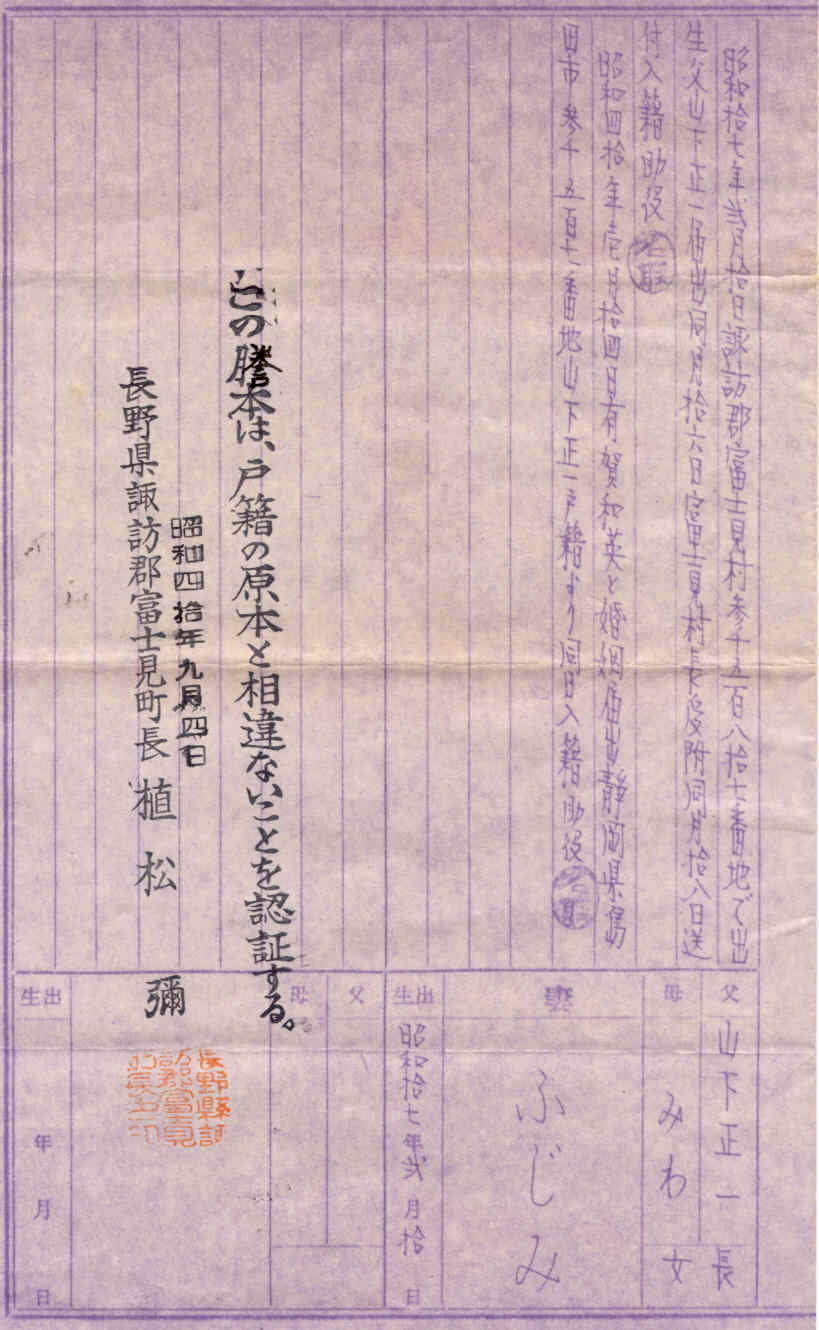 昭和拾七年弐月拾日諏訪郡富士見村参千五百八拾七番地で出
生父山下正一届出同月拾六日富士見村長受附同月拾八日送
付入籍助役
昭和四拾年壱月拾四日有賀和英と婚姻届出静岡県島
田市参千五百七番地山下正一戸籍より同日入籍助役
父 山下正一
母 みわ
長女
妻
ふじみ
出生 昭和拾七年弐月拾日
父
母
この謄本は、戸籍の原本と相違ないことを認証する。
昭和四拾年九月四日
長野県諏訪郡富士見町長 植松 彌
出生 年 月 日